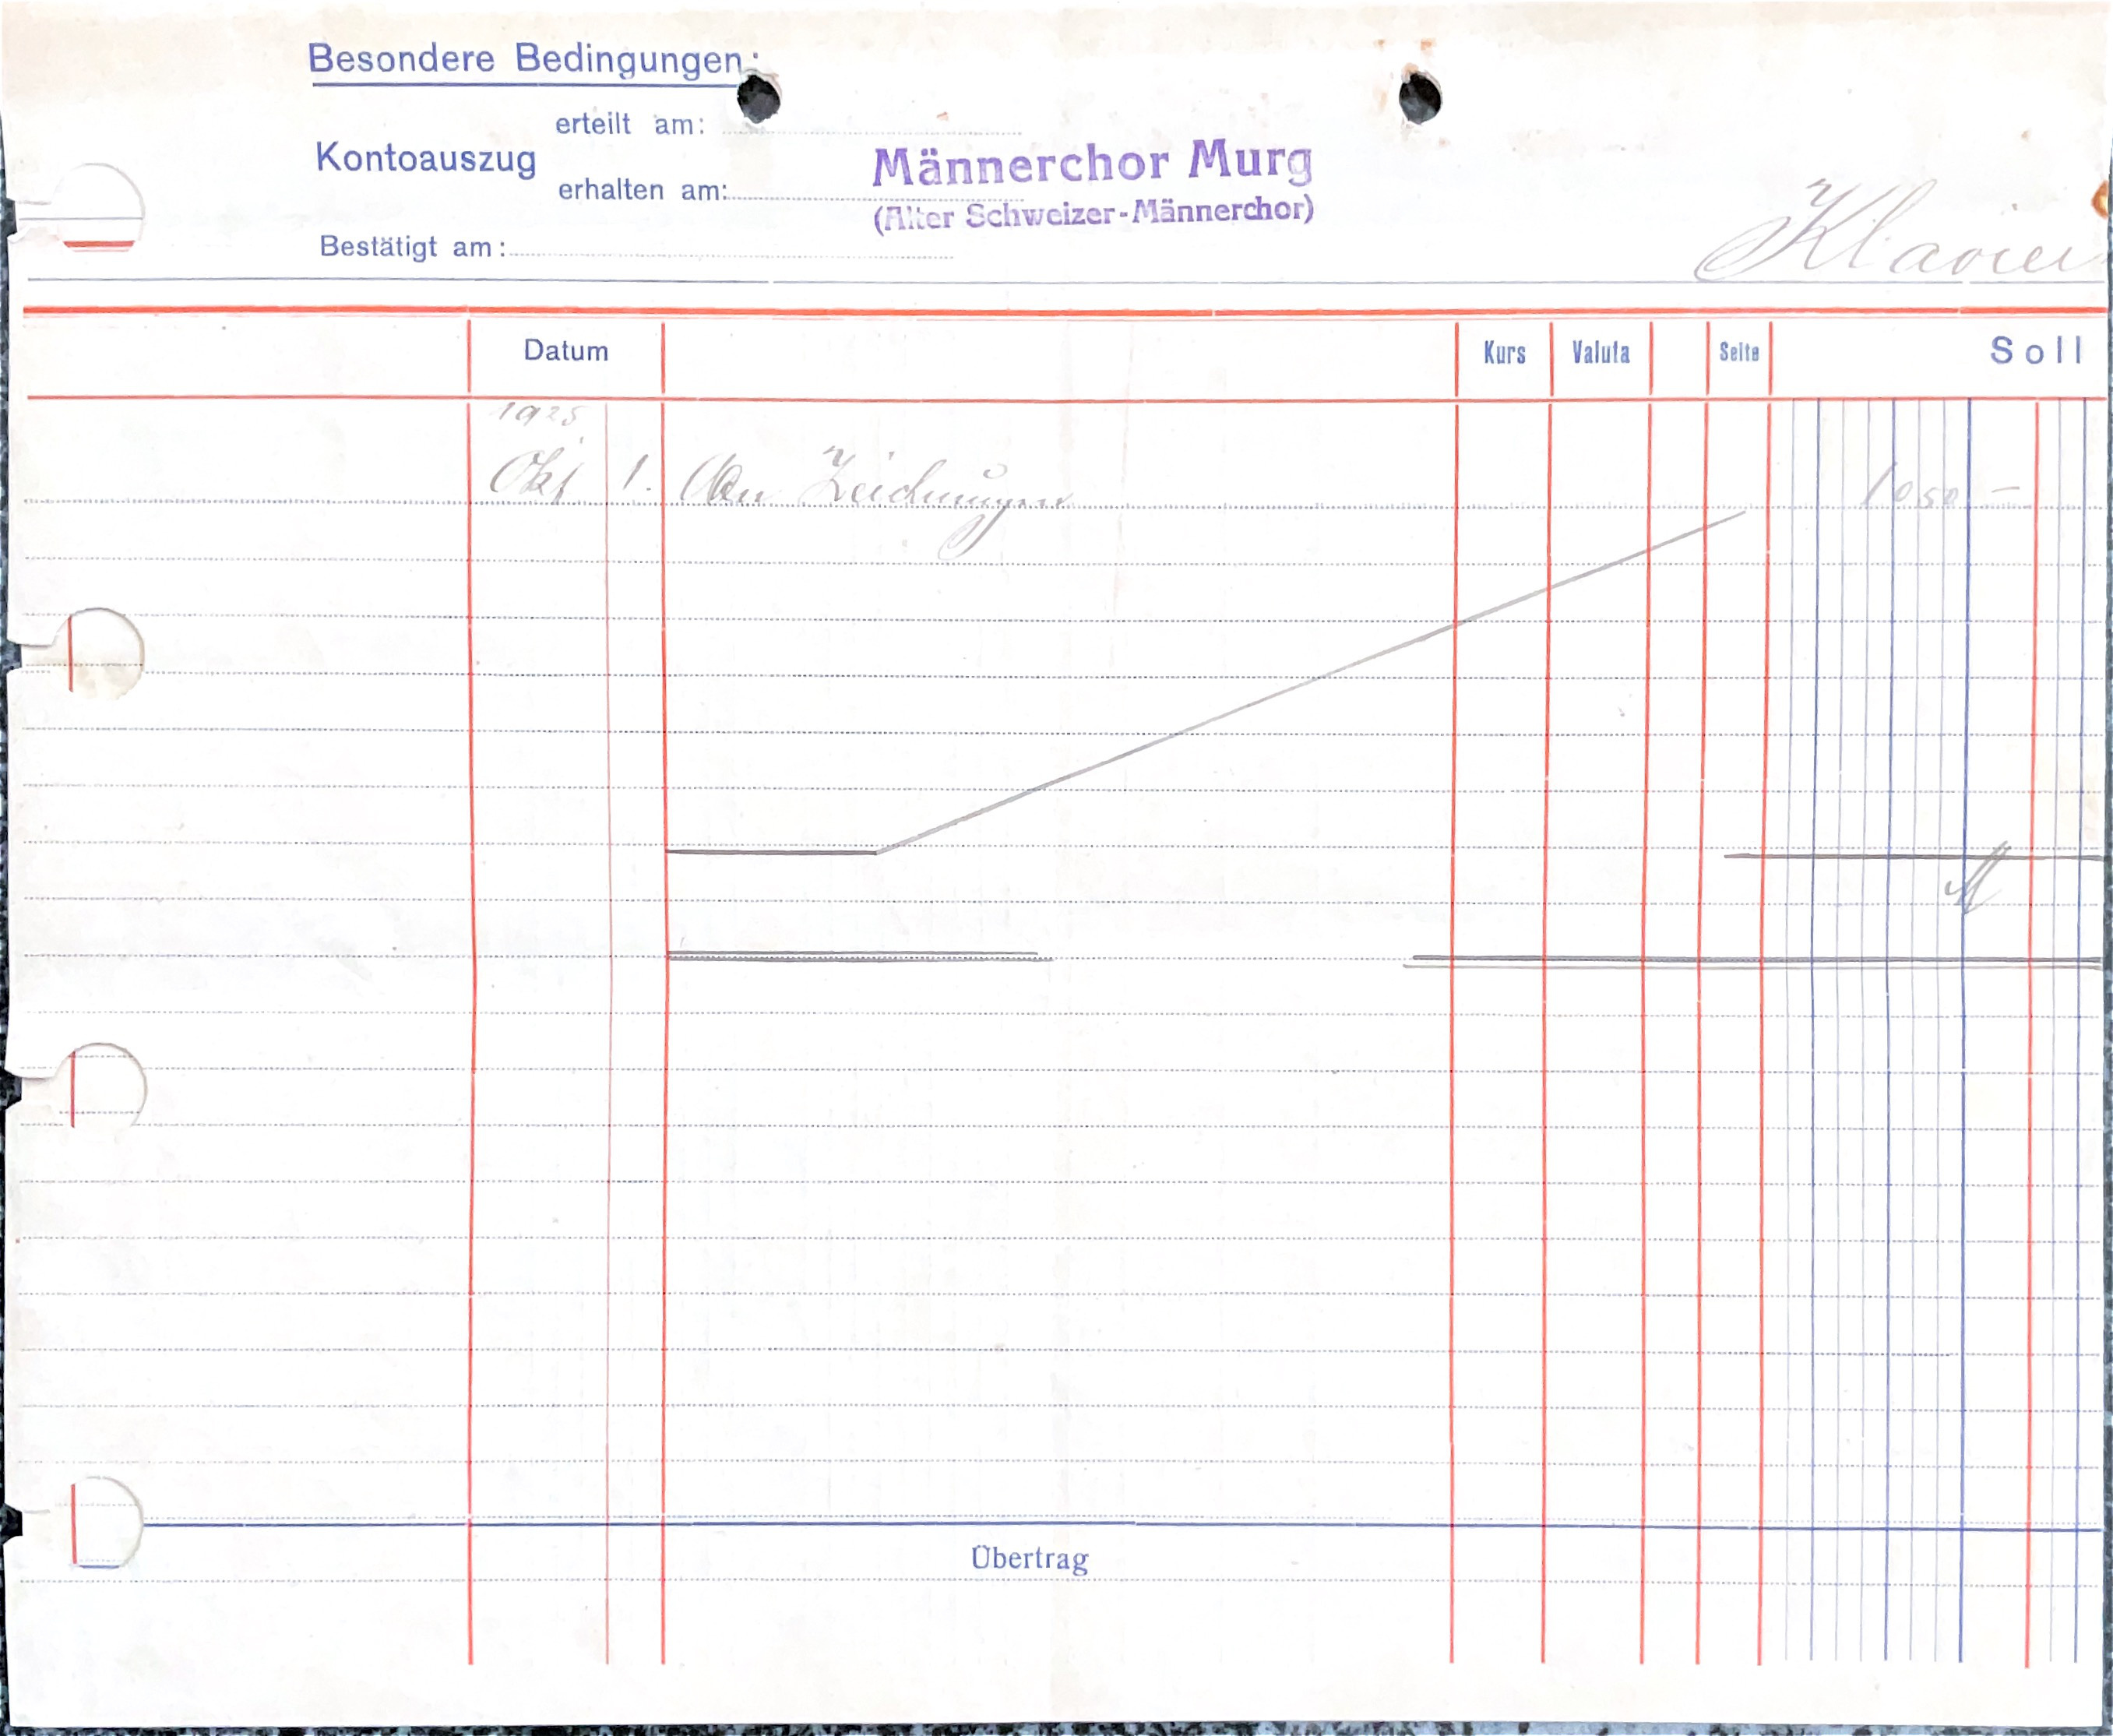 Besondere Bedingungen:
Kontoauszug
erteilt am:
erhalten am:
Bestätigt am:
Männerchor Murg
(Alter Schweizer-Männerchor)
Klavier
Datum Kurs Valuta Seite Soll
1925
Okt 1. An Zeichnungen 1050 –
Übertrag